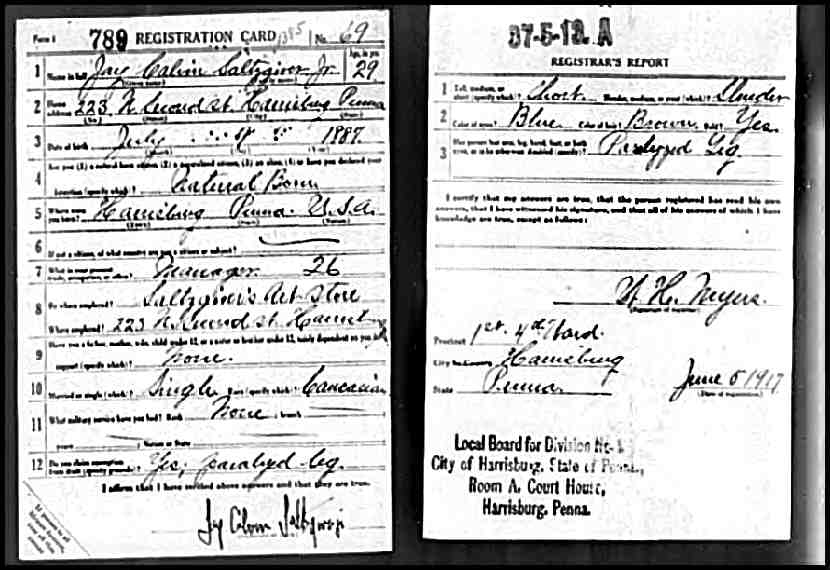 Form 1 789 REGISTRATION CARD No. 69
1 Name in full Jay Calvin Saltzgiver Jr. Age, in yrs. 29
2 Home address 223 N. Second St. Harrisburg Penna
3 Date of birth July 1887
4 Are you (1) a natural born citizen, (2) a naturalized citizen, (3) an alien, (4) or have you declared your
intention (specify which)? Natural Born
5 Where were you born? Harrisburg Penna. U.S.A.
6 If not a citizen, of what country are you a citizen or subject?
7 What is your present trade, occupation, or office? Manager 26
8 By whom employed? Saltzgiver's Art Store
Where employed? 223 N. Second St.
9 Have you a father, mother, wife, child under 12, or a sister or brother under 12, solely dependent on you for
support (specify which)? None.
10 Married or single (which)? Single Race (specify which)? Caucasian
11 What military service have you had? Rank None ; branch
years ; Nation or State
12 Do you claim exemption from draft (specify grounds)? Yes, paralyzed leg.
I affirm that I have verified above answers and that they are true.
Jay Calvin Saltzgiver Jr
37-5-13. A
REGISTRAR'S REPORT
1 Tall, medium, or short (specify which)? Short. Slender, medium, or stout (which)? Slender
2 Color of eyes? Blue Color of hair? Brown Bald? Yes.
3 Has person lost arm, leg, hand, foot, or both eyes, or is he otherwise disabled (specify)? Paralyzed Leg
I certify that my answers are true, that the person registered has read his own
answers, that I have witnessed his signature, and that all of his answers of which I have
knowledge are true, except as follows:
W. H. Meyers.
(Signature of registrar)
Precinct 1st. 4th Ward.
City or County Harrisburg
State Penna. June 5 1917
(Date of registration)
Local Board for Division No. 1
City of Harrisburg, State of Penna.,
Room A, Court House,
Harrisburg, Penna.